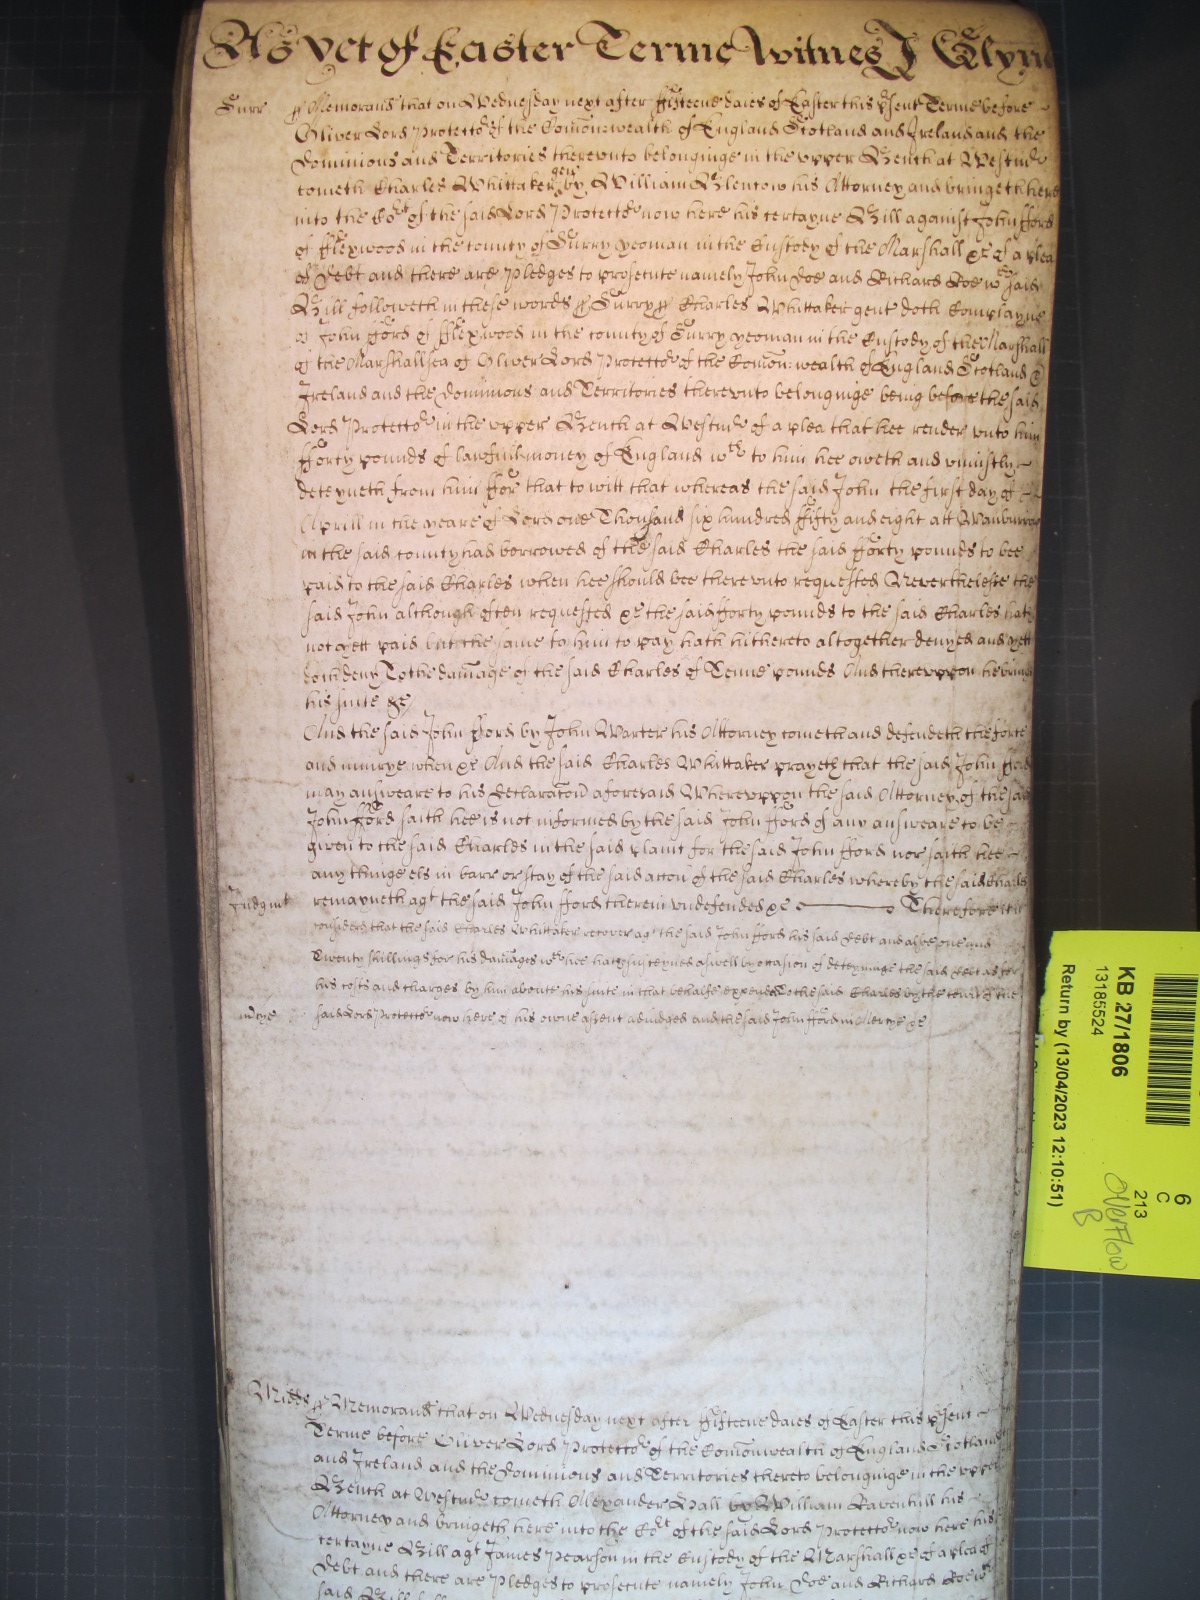 As yet of Easter Terme Witnes J Glyn
Surr ss Memorand that on Wednesday next after fifteene daies of Easter this psent Terme before
Oliver Lord Protector of the Comonwealth of England Scotland and Ireland and the
dominions and Territories therevnto belonginge in the vpper Bench at Westmr
cometh Charles Whittaker gen by William Blencow his Attorney and bringeth here
into the Cort of the said Lord Protector now here his certayne Bill against John fford
of fflexwood in the county of Surry yeoman in the Custody of the Marshall &c of a plea
of debt and there are Pledges to prosecute namely John Doe and Richard Roe wch said
Bill followeth in these words ss Surry ss Charles Whittaker gent doth Complayne
of John fford of fflexwood in the county of Surry yeoman in the Custody of the Marshall
of the Marshallsea of Oliver Lord Protector of the Comon: wealth of England Scotland &
Ireland and the dominions and Territories therevnto belonginge being before the said
Lord Protector in the vpper Bench at Westmr of a plea that hee render vnto him
fforty pounds of lawfull money of England wch to him hee oweth and vniustly
deteyneth from him ffor that to witt that whereas the said John the first day of
Aprill in the yeare of Lord one Thousand six hundred fifty and eight att
in the said county had borrowed of the said Charles the said fforty pounds to bee
paid to the said Charles when hee should bee therevnto requested Neverthelesse the
said John although often requested &c the said fforty pounds to the said Charles hath
not yett paid but the same to him to pay hath hithereto altogether denyed and yett
doth deny To the damage of the said Charles of Tenne pounds And therevppon he brings
his suite &c
And the said John fford by John Warter his Attorney cometh and defendeth the force
and iniurye when &c And the said Charles Whittaker prayeth that the said John fford
may answeare to his declaraton aforesaid Wherevppon the said Attorney of the said
John fford saith hee is not informed by the said John fford of any answeare to be
given to the said Charles in the said plaint for the said John fford nor saith hee
any thinge els in barr or stay of the said accon of the said Charles whereby the said Charles
Judgmt remayneth agt the said John fford therein vndefended &c Therefore it is
considered that the said Charles Whittaker recover agt the said John fford his said debt and alsoe one and
Twenty shillings for his damages wch hee hath susteyned aswell by occasion of deteyninge the said debt as for
his costs and charges by him aboute his suite in that behalfe expended To the said Charles by the court of the
in mcye said Lord Protector now here of his owne assent adiudged and the said John fford in Mercye &c
Midds ss Memorand that on Wednesday next after fifteene daies of Easter this psent
Terme before Oliver Lord Protector of the Comonwealth of England Scotland
and Ireland and the dominions and Territories thereto belonginge in the vpper
Bench at Westmr cometh Alexander Hall by William Ravenhill his
Attorney and bringeth here into the Cort of the said Lord Protector now here his
certayne Bill agt James Pearson in the Custody of the Marshall &c of a plea of
debt and there are Pledges to prosecute namely John Doe and Richard Roe wch
said Bill
KB 27/1806
13185524
Return by (13/04/2023 12:10:51)
6
C
213
Overflow
B